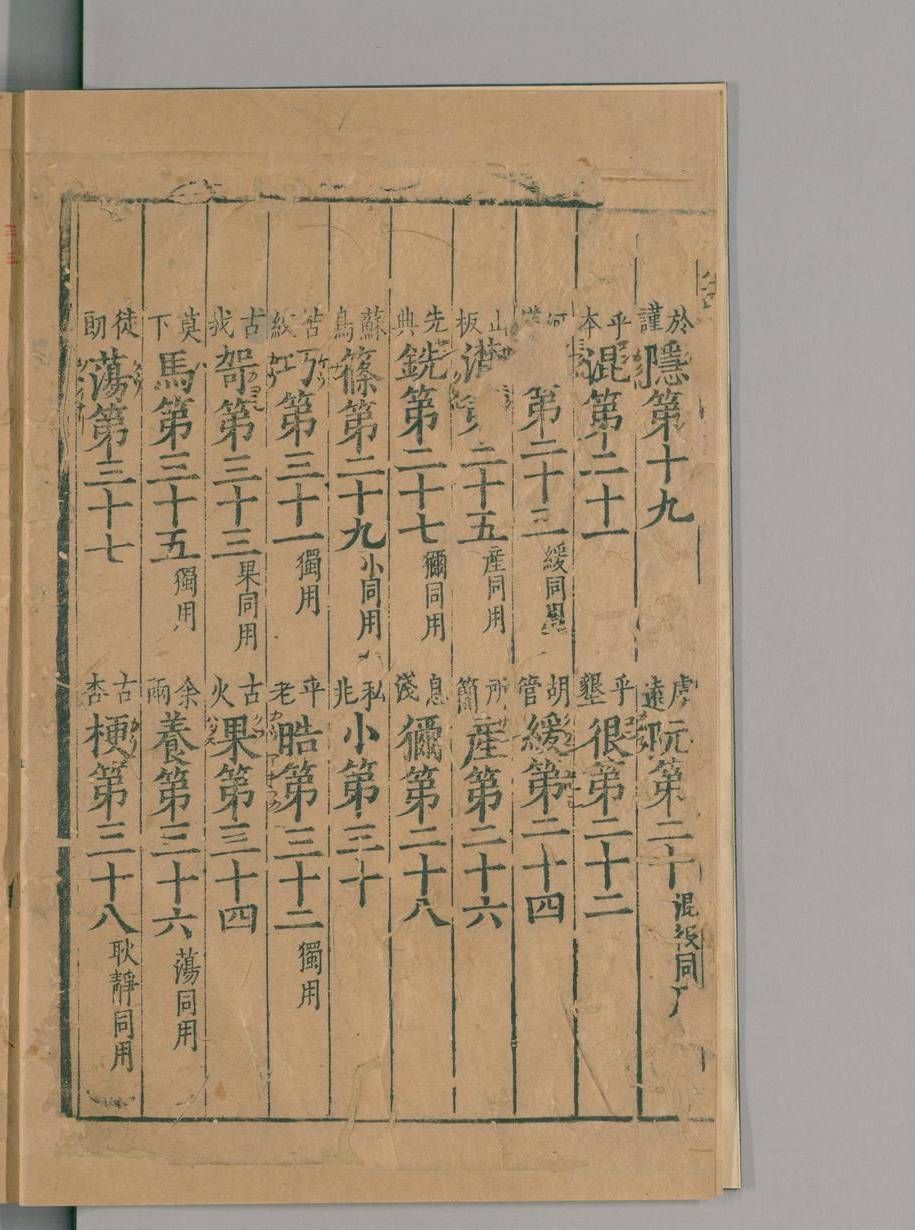 於謹隱第十九
虚遠阮第二十混很同
乎本混第二十一
乎墾很第二十二
第二十三緩同
胡管緩第二十四
山板潸第二十五産同用
所簡産第二十六
先典銑第二十七獮同用
息淺獮第二十八
蘇鳥篠第二十九小同用
私兆小第三十
苦絞巧第三十一獨用
乎老晧第三十二獨用
古我哿第三十三果同用
古火果第三十四
莫下馬第三十五獨用
余兩養第三十六蕩同用
徒朗蕩第三十七
古杏梗第三十八耿靜同用